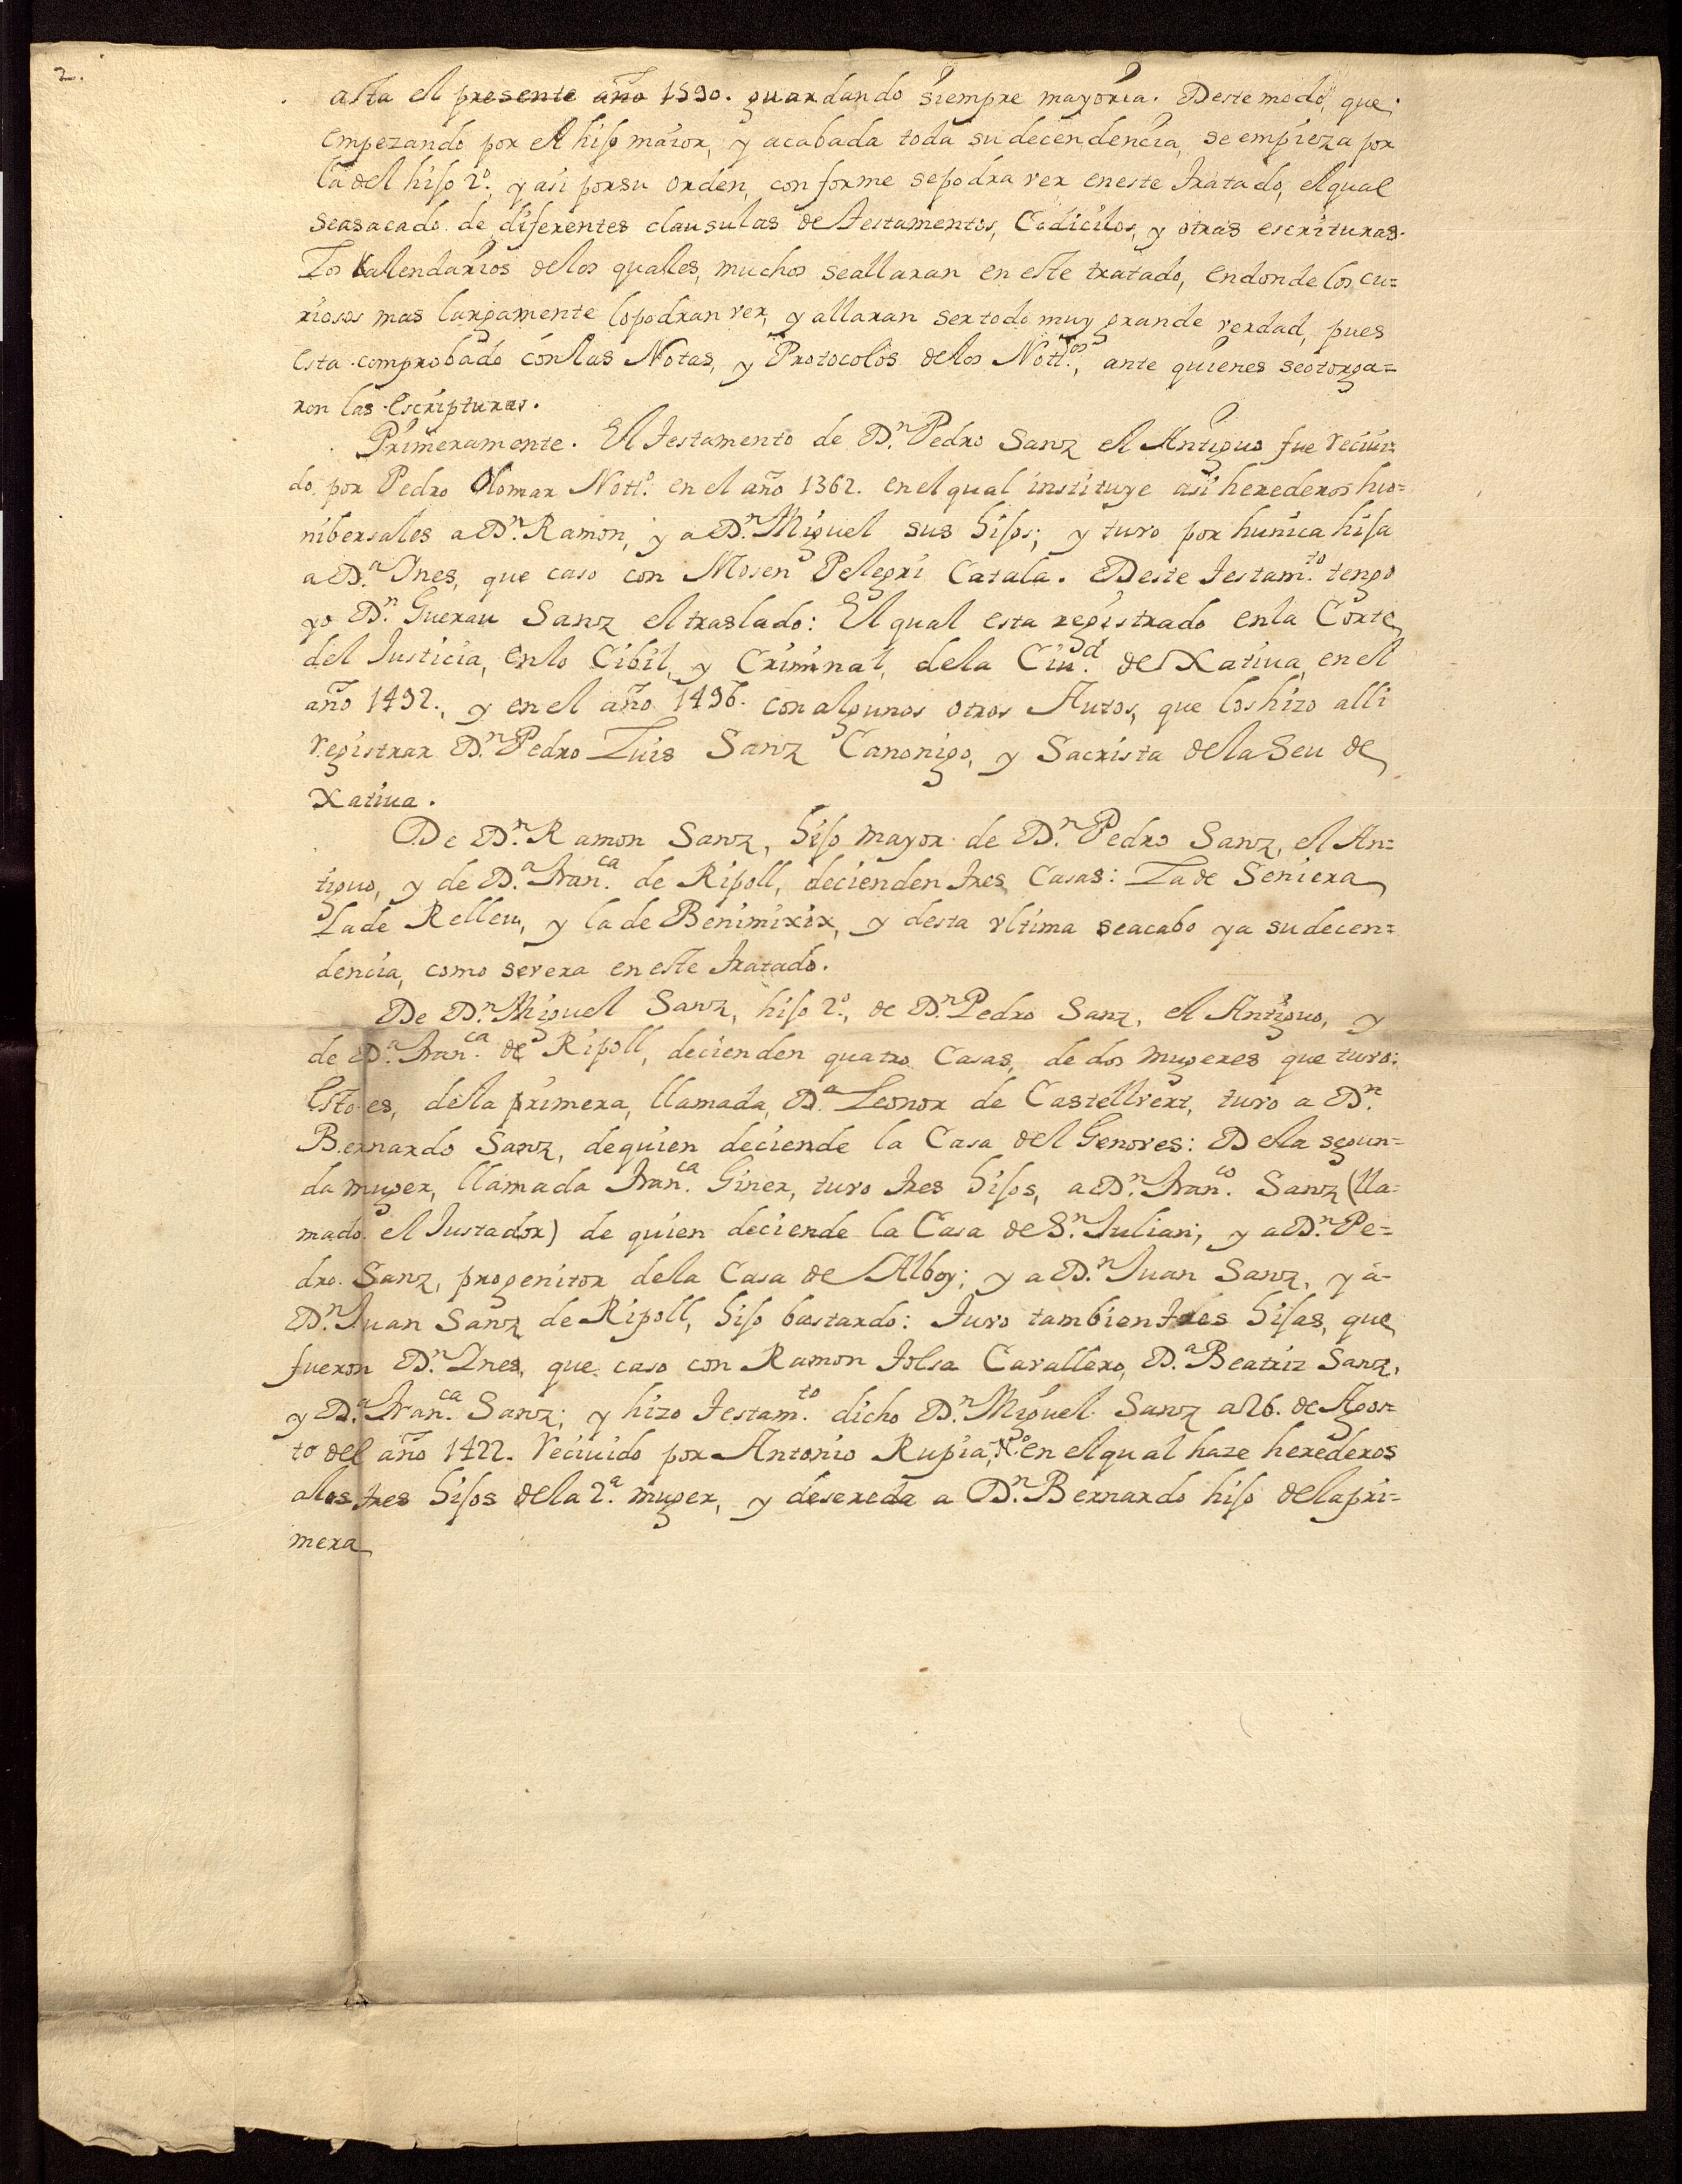 2.
asta el presente año 1590. guardando siempre mayoria. Deste modo, que
empezando por el hijo maior, y acabada toda su decendencia, se empieza por
la del hijo 2º. y asi por su orden, conforme se podra ver en este tratado, el qual
se a sacado de diferentes clausulas de testamentos, Codicilos, y otras escrituras.
Los Kalendarios de los quales, muchos se allaran en este tratado, en donde los cu=
riosos mas largamente lo podran ver, y allaran ser todo muy grande verdad, pues
esta comprobado con las Notas, y Protocolos de los Nott.os, ante quienes se otorga=
ron las Escripturas.
Primeramente. El testamento de D.n Pedro Sanz el Antiguo fue reciui=
do por Pedro Olomar Nott.º en el año 1362. en el qual instituye asi herederos hu=
nibersales a D.n Ramon, y a D.n Miguel sus hijos; y tuvo por hunica hija
a D.a Ines, que caso con Mosen Pelegri Catala. Deste testam.to tengo
yo D.n Guerau Sanz el traslado: El qual esta registrado en la Corte
del Justicia, en lo Cibil, y Criminal, de la Ciu.d de Xatiua, en el
año 1492., y en el año 1496. con algunos otros Autos, que los hizo alli
registrar D.n Pedro Luis Sanz Canonigo, y Sacrista de la Seu de
Xatiua.
De D.n Ramon Sanz, hijo mayor de D.n Pedro Sanz, el An=
tiguo, y de D.a Fran.ca de Ripoll, decienden tres Casas: La de Seniera
La de Relleu, y la de Benimixix, y desta vltima se acabo ya su decen=
dencia, como se vera en este tratado.
De D.n Miguel Sanz, hijo 2º, de D.n Pedro Sanz, el Antiguo, y
de D.a Fran.ca de Ripoll, decienden quatro Casas, de dos mugeres que tuvo:
Esto es, de la primera, llamada D.a Leonor de Castellvert, tuvo a D.n
Bernardo Sanz, de quien deciende la Casa del Genoves: De la segun=
da muger, llamada Fran.ca Giner, tuvo tres hijos, a D.n Fran.co Sanz (lla=
mado el Justador) de quien deciende la Casa de S.n Julian; y a D.n Pe=
dro Sanz, progenitor de la Casa de Alboy; y a D.n Juan Sanz, y a
D.n Juan Sanz de Ripoll, hijo bastardo: tuvo tambien tres hijas, que
fueron D.n Ines, que caso con Ramon Tolsa Cavallero, D.a Beatriz Sanz,
y D.a Fran.ca Sanz; y hizo testam.to dicho D.n Miguel Sanz a 26. de Agos=
to del año 1422. reciuido por Antonio Rupia, N.º en el qual haze herederos
a los tres hijos de la 2.a muger, y desereda a D.n Bernardo hijo de la pri=
mera